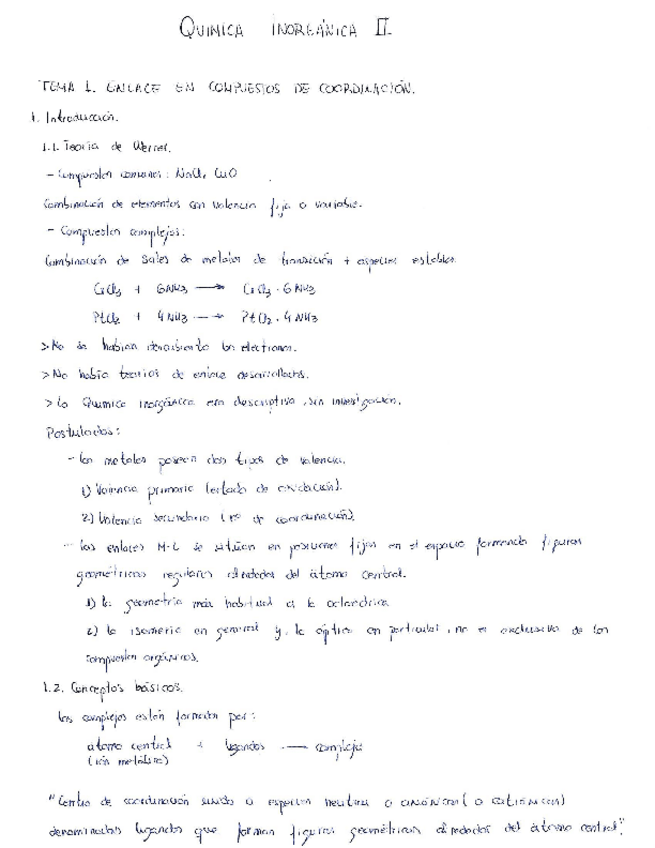 QUIMICA INORGÁNICA II.
TEMA 1. ENLACE EN COMPUESTOS DE COORDINACIÓN.
1. Introducción.
1.1. Teoría de Werner.
- Compuestos comunes: NaCl, CuO
Combinación de elementos con valencia fija o variable.
- Compuestos complejos:
Combinación de sales de metales de transición + especies estables
CrCl3 + 6NH3 → CrCl3 · 6 NH3
PtCl2 + 4 NH3 → PtCl2 . 4 NH3
> No se habían descubierto los electrones.
> No había teorías de enlace desarrolladas.
> La Química inorgánica era descriptiva, sin investigación.
Postulados:
- Los metales poseen dos tipos de valencia.
1) Valencia primaria (estado de oxidación).
2) Valencia secundaria (nº de coordinación).
- Los enlaces M-L se sitúan en posiciones fijas en el espacio formando figuras
geométricas regulares alrededor del átomo central.
1) la geometría más habitual es la octaédrica
2) la isomería en general y, la óptica en particular, no es exclusiva de los
compuestos orgánicos.
1.2. Conceptos básicos.
Los complejos están formados por:
átomo central + ligandos → complejo
(ión metálico)
"Centro de coordinación unido a especies neutras o aniónicas (o catiónicas)
denominadas ligandos que forman figuras geométricas alrededor del átomo central."